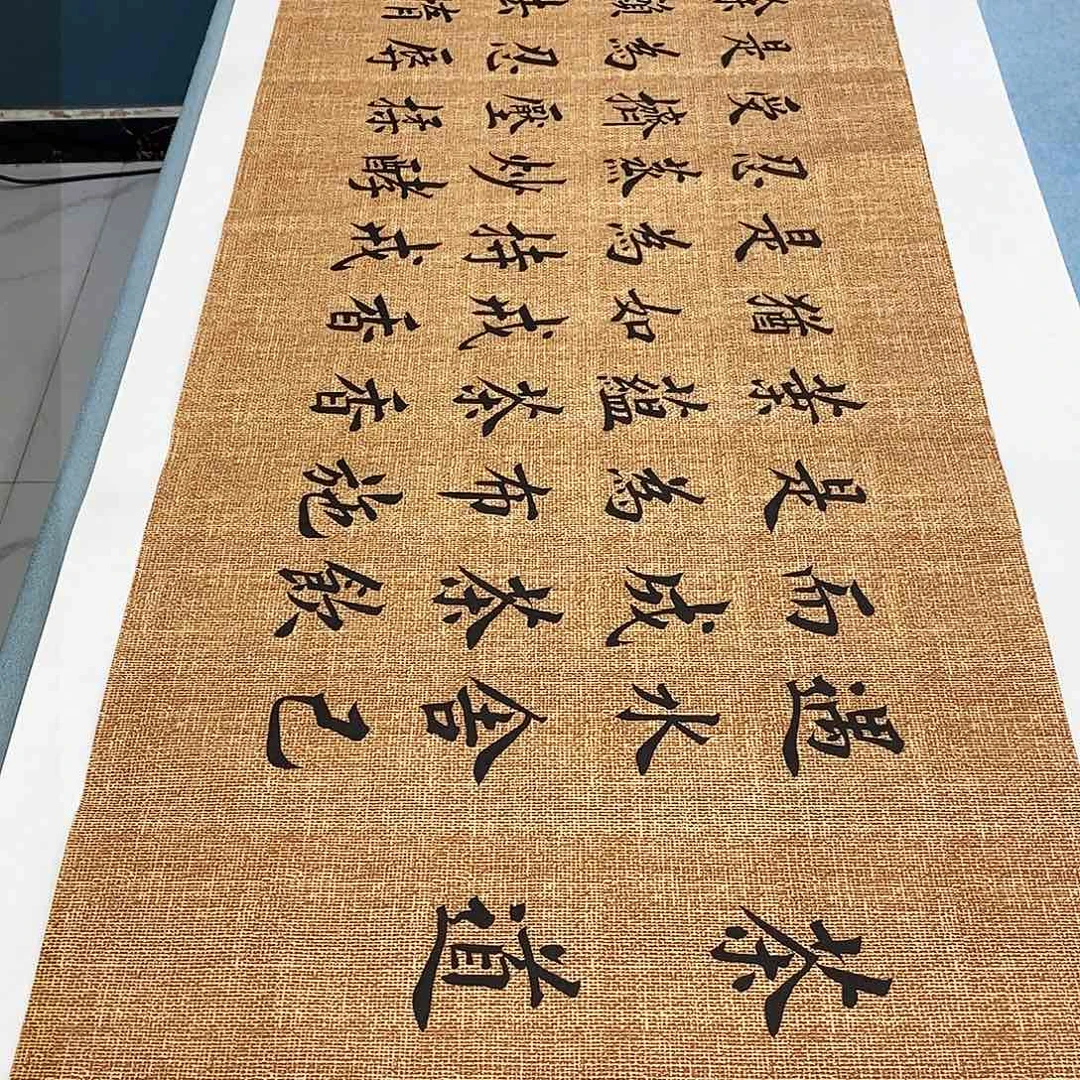 茶道
遇水舍己
而成茶飲
是為布施
葉蘊茶香
猶如戒香
是為持戒
忍蒸炒酵
受擠壓揉
是為忍辱